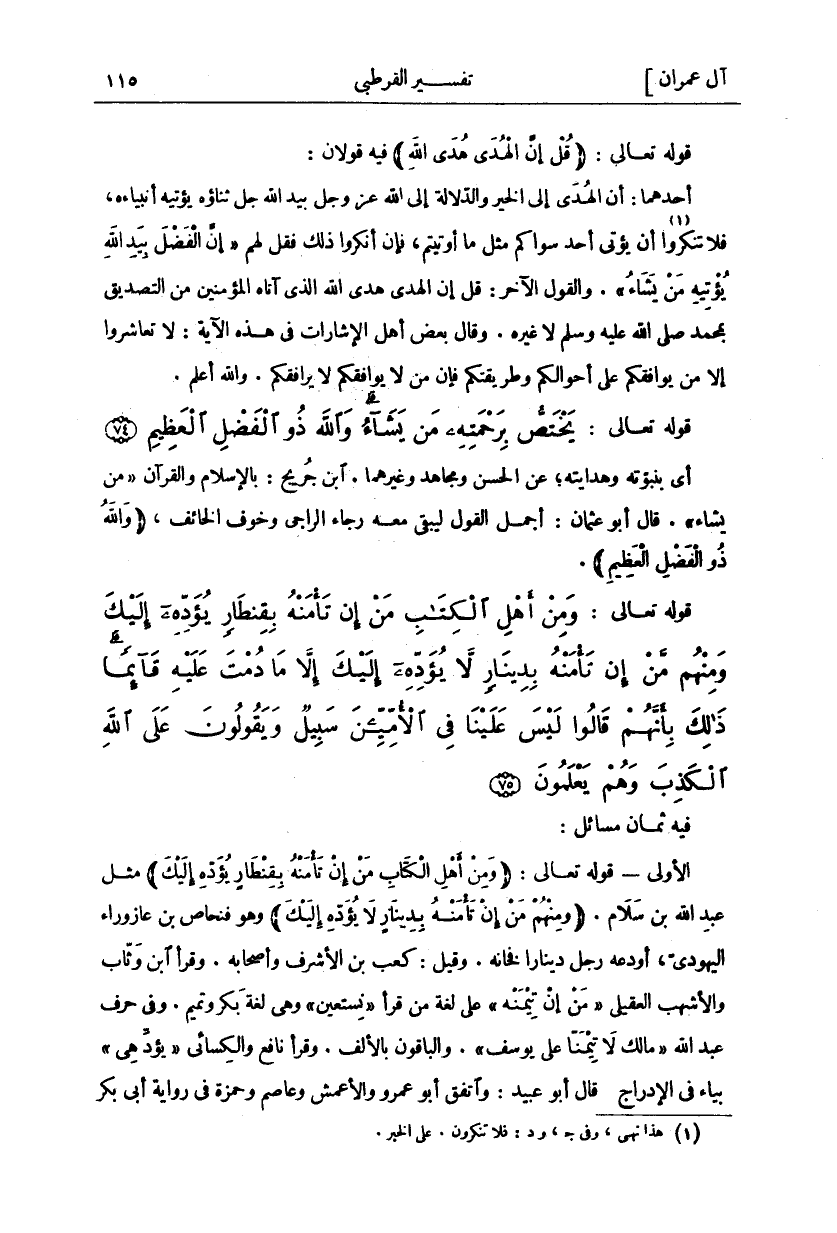 آل عمران ] تفسير القرطبى ١١٥
قوله تعالى : ﴿ قُلْ إنَّ الْهُدَى هُدَى اللهِ ﴾ فيه قولان :
أحدهما : أن الهُدَى إلى الخير والدّلالة إلى الله عز وجل بيد الله جل ثناؤه يؤتيه أنبياءه ،
فلا تنكروا (١) أن يؤتى أحد سواكم مثل ما أوتيتم ، فإن أنكروا ذلك فقل لهم « إنَّ الْفَضْلَ بِيَدِ اللهِ
يُؤْتِيهِ مَنْ يَشَاءُ » . والقول الآخر : قل إن الهدى هدى الله الذى آتاه المؤمنين من التصديق
بمحمد صلى الله عليه وسلم لا غيره . وقال بعض أهل الإشارات فى هـذه الآية : لا تعاشروا
إلا من يوافقكم على أحوالكم وطريقتكم فإن من لا يوافقكم لا يرافقكم . والله أعلم .
قوله تعـالى : يَخْتَصُّ بِرَحْمَتِهِۦ مَن يَشَآءُ وَٱللَّهُ ذُو ٱلْفَضْلِ ٱلْعَظِيمِ ٧٤
أى بنبوّته وهدايته ؛ عن الحسن ومجاهد وغيرهما . ٱبن جُريج : بالإسلام والقرآن « من
يشاء » . قال أبو عثمان : أجمـل القول ليبقى معـه رجاء الراجى وخوف الخائف ، ﴿ وَاللهُ
ذُو الْفَضْلِ الْعَظِيمِ ﴾ .
قوله تعـالى : وَمِنْ أَهْلِ ٱلْكِتَٰبِ مَنْ إِن تَأْمَنْهُ بِقِنطَارٍ يُؤَدِّهِۦٓ إِلَيْكَ
وَمِنْهُم مَّنْ إِن تَأْمَنْهُ بِدِينَارٍ لَّا يُؤَدِّهِۦٓ إِلَيْكَ إِلَّا مَا دُمْتَ عَلَيْهِ قَآئِمًا
ذَٰلِكَ بِأَنَّهُمْ قَالُوا لَيْسَ عَلَيْنَا فِى ٱلْأُمِّيِّـۧنَ سَبِيلٌ وَيَقُولُونَ عَلَى ٱللَّهِ
ٱلْكَذِبَ وَهُمْ يَعْلَمُونَ ٧٥
فيه ثمـان مسائل :
الأولى — قوله تعـالى : ﴿ وَمِنْ أَهْلِ الْكِتَابِ مَنْ إنْ تَأْمَنْهُ بِقِنْطَارٍ يُؤَدِّهِ إلَيْكَ ﴾ مثـل
عبد الله بن سَلَام . ﴿ وَمِنْهُمْ مَنْ إنْ تَأْمَنْـهُ بِدِينَارٍ لَا يُؤَدِّهِ إلَيْكَ ﴾ وهو فنحاص بن عازوراء
اليهودىّ ، أودعه رجل دينارا فخانه . وقيل : كعب بن الأشرف وأصحابه . وقرأ ٱبن وَثّاب
والأشهب العقيلى « مَنْ إنْ تِيمَنْه » على لغة من قرأ « نِستعين » وهى لغة بَكر وتميم . وفى حرف
عبد الله « مالك لَا تِيْمَنّا على يوسف » . والباقون بالألف . وقرأ نافع والكسائى « يؤدِّهِى »
بياء فى الإدراج قال أبو عبيد : وٱتفق أبو عمرو والأعمش وعاصم وحمزة فى رواية أبى بكر
(١) هذا نهى ، وفى جـ ، و د : فلا تنكرون . على الخبر .